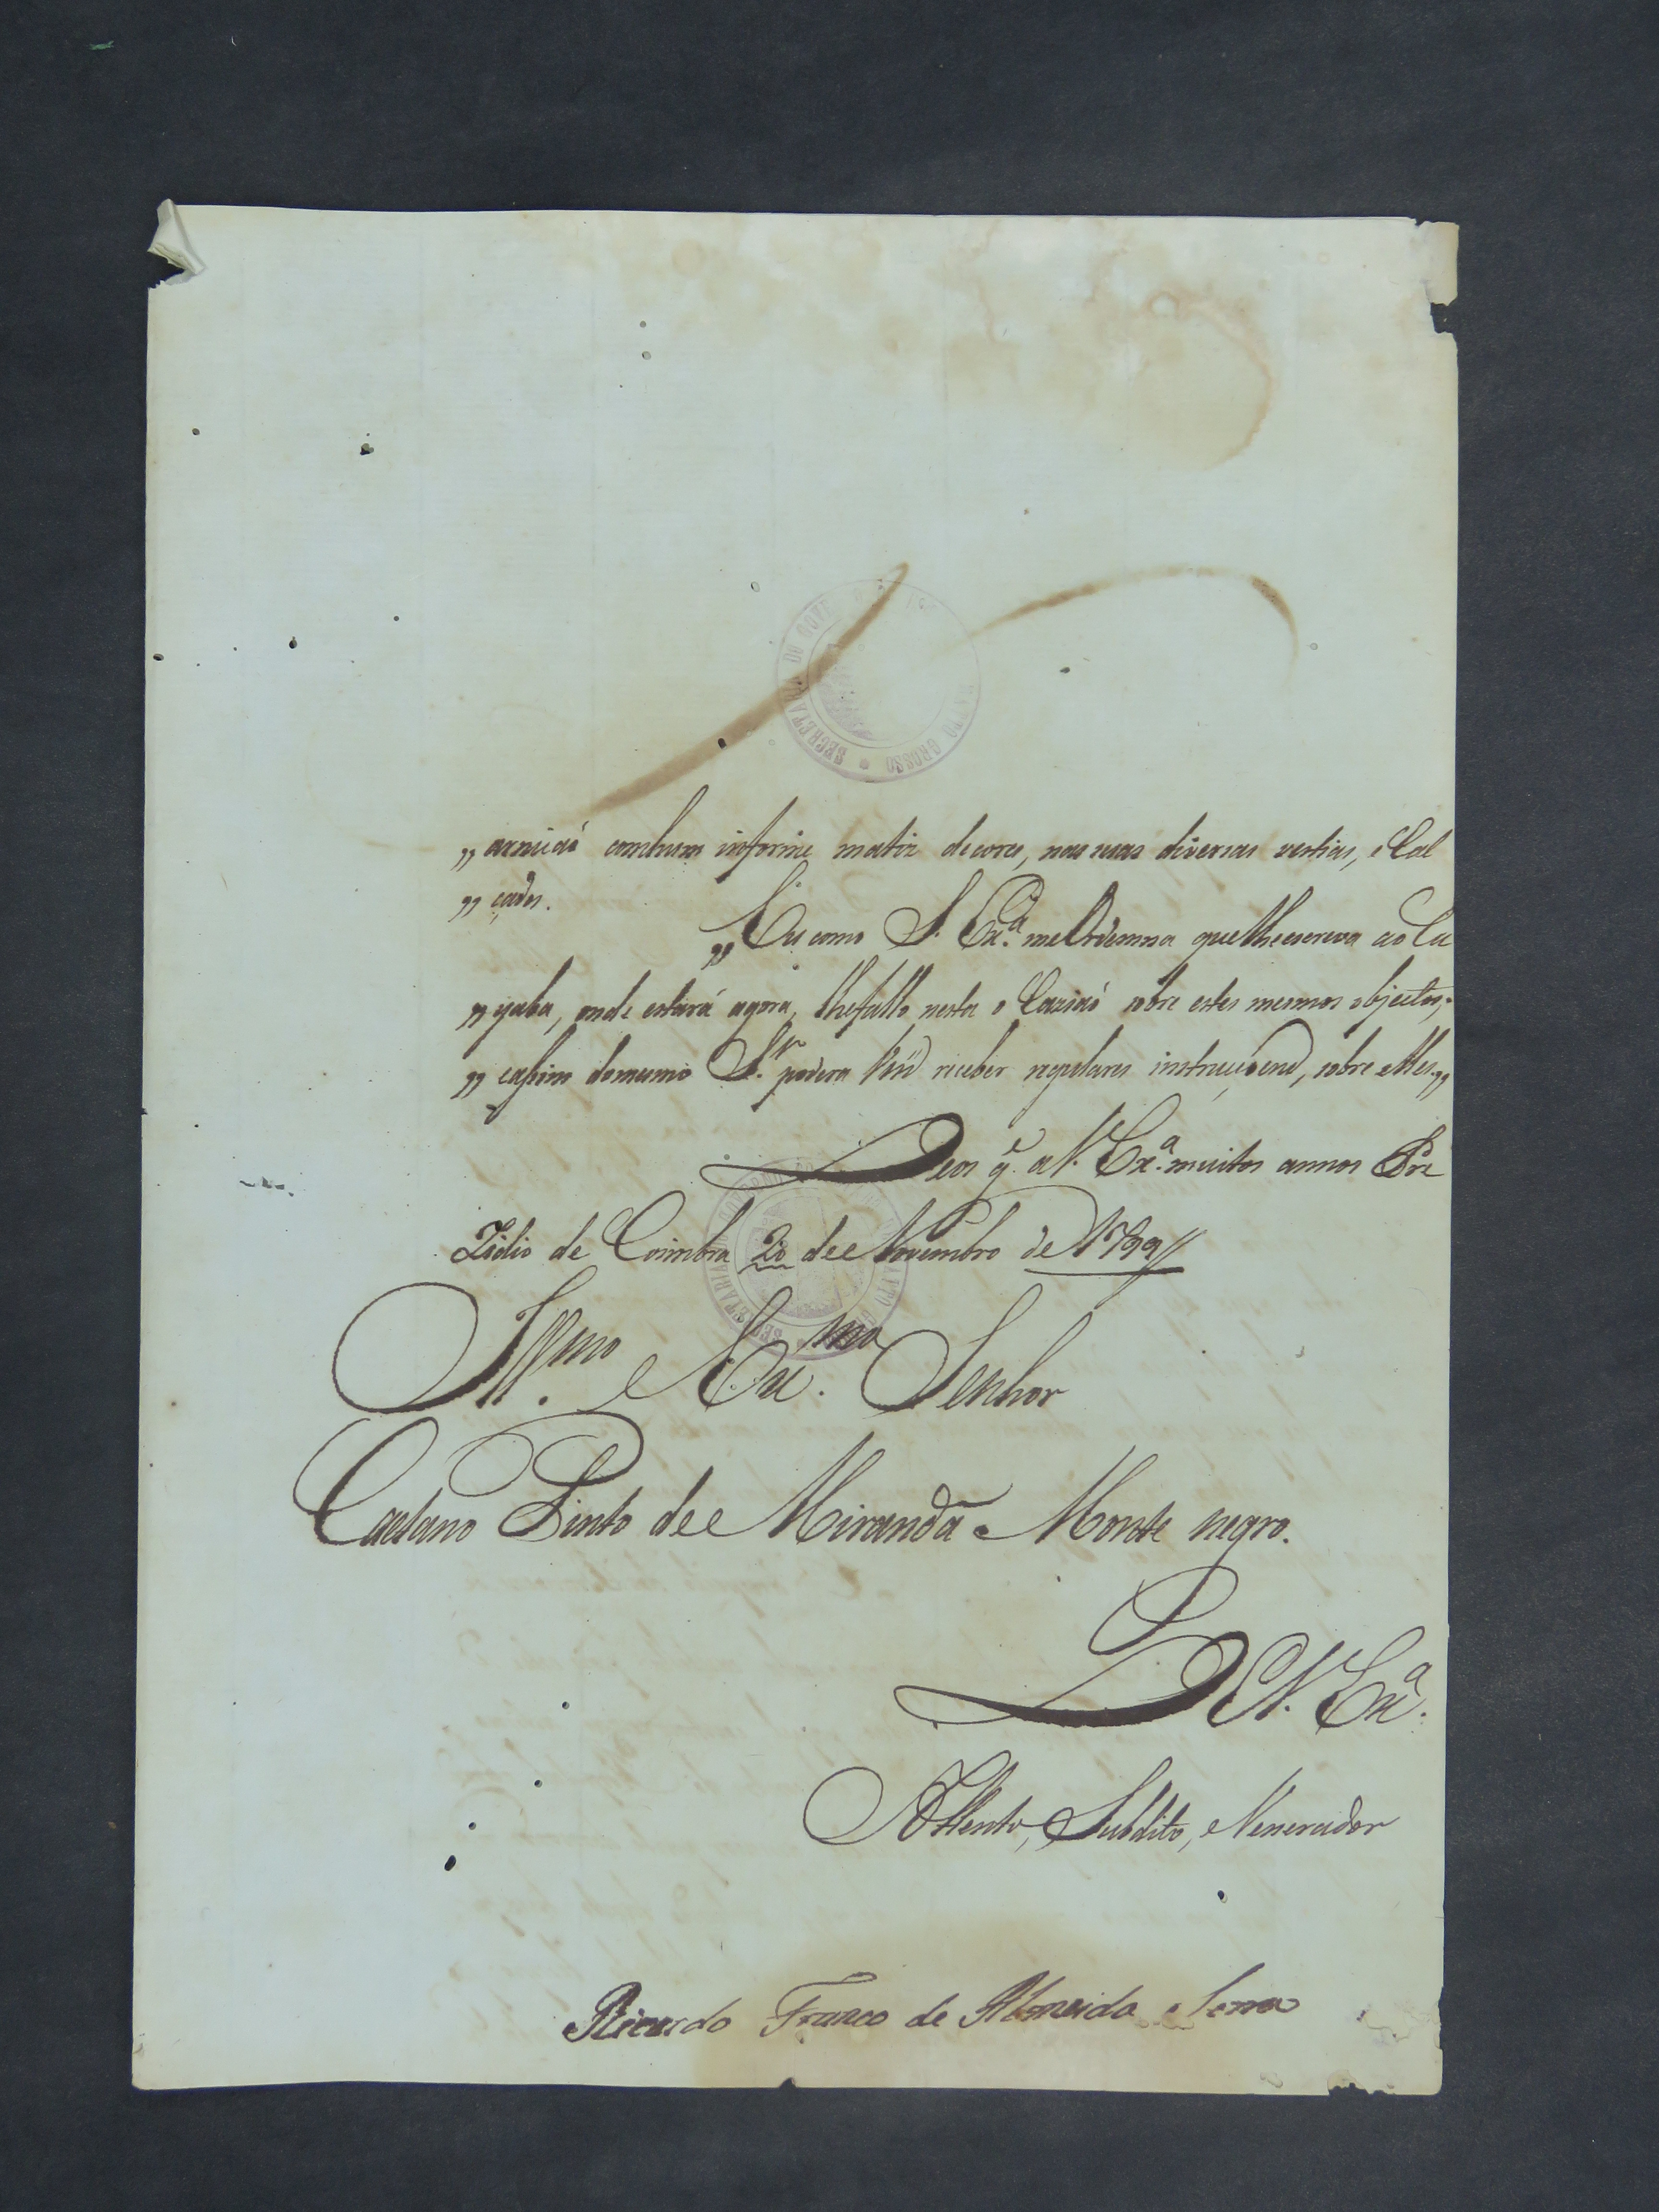 SECRETARIA DO GOVERNO MATTO GROSSO
„ com hum informe matiz de cores, nas suas diversas vestias, e Cal
„ çados.
„ Eu como S. Ex.ª me Ordenna que lhe escreva ao Cu
„ yaba, onde estará agora, lhe fallo nesta o Casiaó sobre estes mesmos objectos;
„ e assim do mesmo S.r podera receber regulares sobre elles „
Deos g.e a V. Ex.ª muitos annos Pre
Zidio de Coimbra 20 de Novembro de 1799 //
Ill.mo e Ex.mo Senhor
Caetano Pinto de Miranda Monte negro.
De V. Ex.ª
Attento, Subdito, e Venerador
Ricardo Franco de Almeida Serra